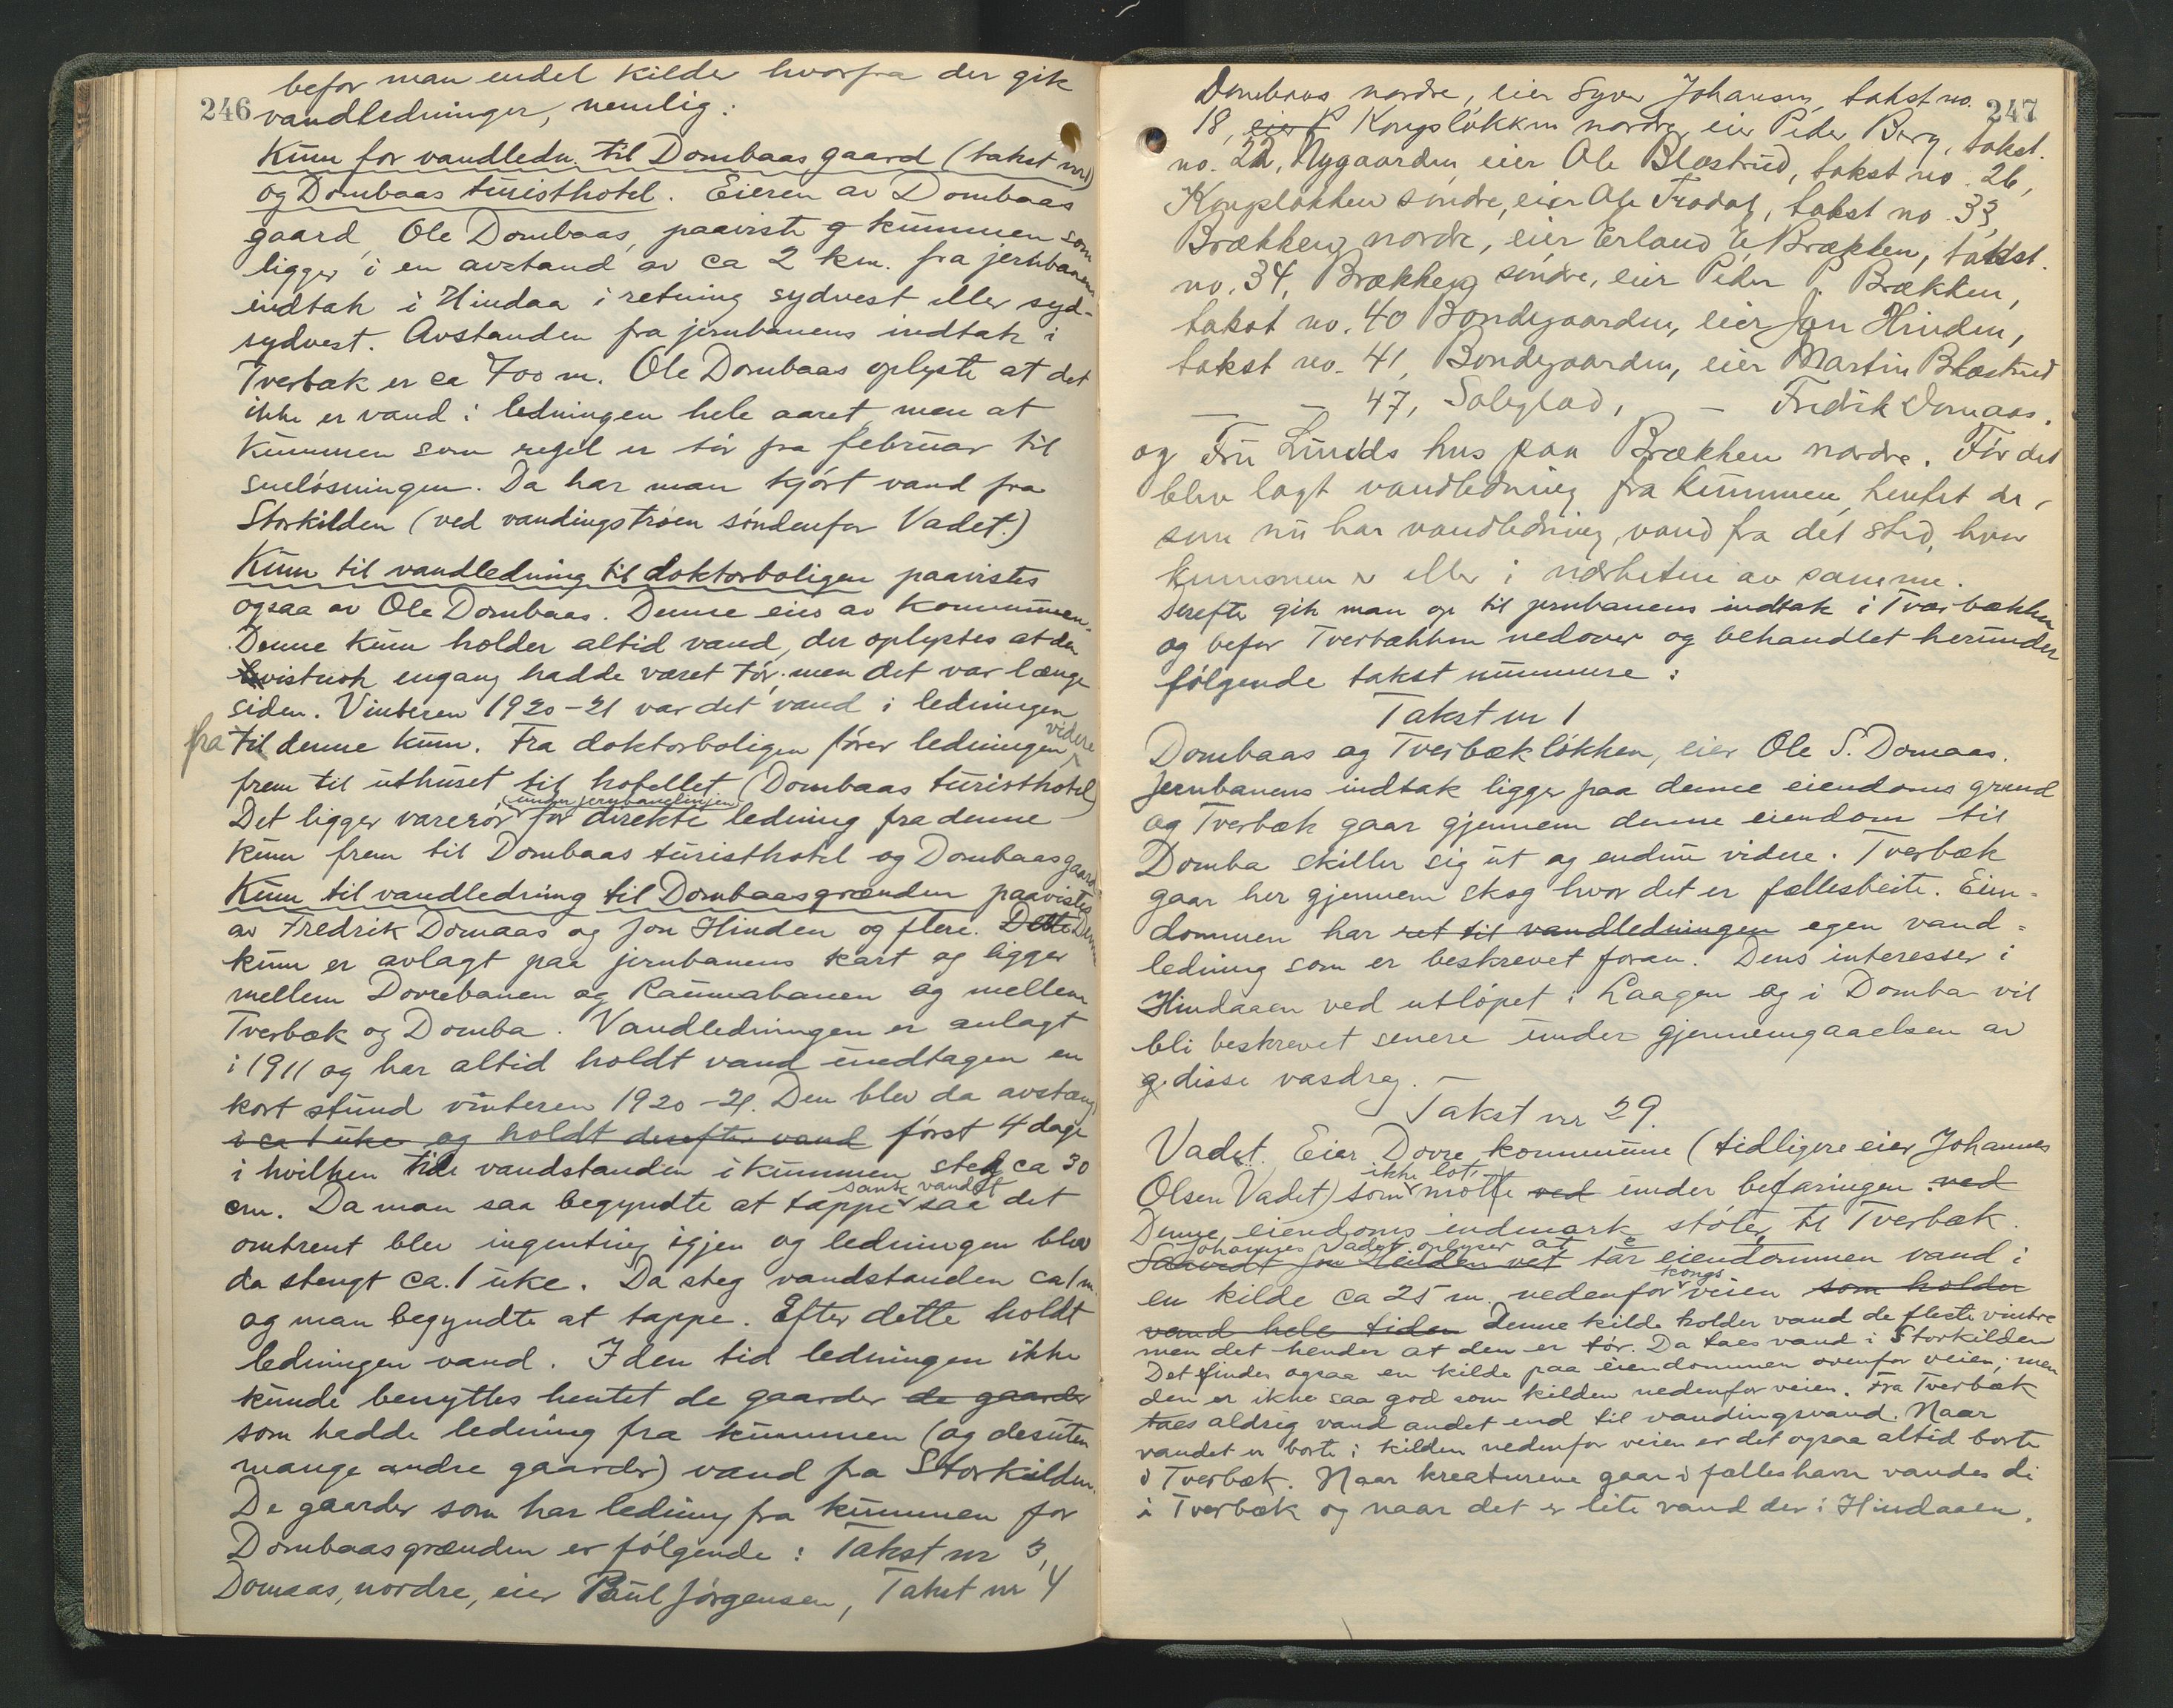 246
befor man endel kilder hvorfra der gik
vandledninger, nemlig:
Kum for vandledn. til Dombaas gaard (takst nr 1)
og Dombaas turisthotel. Eieren av Dombaas
gaard, Ole Dombaas, paaviste kummen som
ligger i en avstand av ca 2 km. fra jernbanens
indtak i Hindaa i retning sydvest eller syd-
sydvest. Avstanden fra jernbanens indtak i
Tverbæk er ca 700 m. Ole Dombaas oplyste at det
ikke er vand i ledningen hele aaret, men at
kummen som regel er tör fra februar til
sneløsningen. Da har man kjört vand fra
Storkilden (ved vandingstrøen söndenfor Vadet.)
Kum til vandledning til doktorboligen paavistes
ogsaa av Ole Dombaas. Denne eies av kommunen.
Denne kum holder altid vand, der oplystes at den
vistnok engang hadde været tör, men det var længe
siden. Vinteren 1920-21 var det vand i ledningen
fra til denne kum. Fra doktorboligen fører ledningen videre
frem til uthuset til hotellet (Dombaas turisthotel)
Det ligger varerør (under jernbanelinjen) for direkte ledning fra denne
kum frem til Dombaas turisthotel og Dombaas gaard
Kum til vandledning til Dombaasgrænden paavistes
av Fredrik Domaas og Jon Hinden og flere. Dette Denne
kum er avlagt paa jernbanens kart og ligger
mellem Dovrebanen og Raumabanen og mellem
Tverbæk og Domba. Vandledningen er anlagt
i 1911 og har altid holdt vand undtagen en
kort stund vinteren 1920-21. Den blev da avstængt
i ca 1 uke og holdt derefter vand først 4 dage
i hvilken tid vandstanden i kummen steg ca 30
cm. Da man saa begyndte at tappe sank vandet saa det
omtrent blev ingenting igjen og ledningen blev
da stengt ca. 1 uke. Da steg vandstanden ca 1 m.
og man begyndte at tappe. Efter dette holdt
ledningen vand. I den tid ledningen ikke
kunde benyttes hentet de gaarder de gaarder
som hadde ledning fra kummen (og desuten
mange andre gaarder) vand fra Storkilden.
De gaarder som har ledning fra kummen for
Dombaasgrænden er følgende: Takst nr 3,
Domaas, nordre, eier Paul Jørgensen, Takst nr 4
247
Dombaas nordre, eier Syver Johansen, takst no.
18, eier P Kongsløkken nordre, eier Peder Berg, takst.
no. 22, Nygaarden, eier Ole Blæstrud, takst no. 26,
Kongsløkken søndre, eier Ole Trødal, takst no. 33,
Brækken nordre, eier Erland E. Brækken, takst.
no. 34, Brækken søndre, eier Peder P. Brækken,
takst no. 40 Bondegaarden, eier Jon Hinden,
takst no. 41, Bondegaarden, eier Martin Blæstrud
— - 47, Solglad, - Fredrik Domaas.
og Fru Lunds hus paa Brækken nordre. Før det
blev lagt vandledning fra kummen, hentet de,
som nu har vandledning, vand fra det sted, hvor
kummen er eller i nærheten av samme.
Derefter gik man op til jernbanens indtak i Tverbækken
og befor Tverbækken nedover og behandlet herunder
følgende takst nummere:
Takst nr 1
Dombaas og Tverbækløkken, eier Ole S. Domaas.
Jernbanens indtak ligger paa denne eiendoms grund
og Tverbæk gaar gjennem denne eiendom til
Domba skiller sig ut og endnu videre. Tverbæk
gaar her gjennem skog hvor det er fællesbeite. Eien-
dommen har ret til vandledningen egen vand-
ledning som er beskrevet foran. Dens interesser i
Hindaaen ved utløpet i Laagen og i Domba vil
bli beskrevet senere under gjennemgaaelsen av
disse vasdrag. —
Takst nr 29.
Vadet. Eier Dovre kommune (tidligere eier Johannes
Olsen Vadet) som ikke lot møtte ved under befaringen. ved
Denne eiendoms indmark støter til Tverbæk.
Johannes Vadet oplyser at
Saavidt Jon Hinden vet tar eiendommen vand i
en kilde ca 25 m. nedenfor kongs veien som holder
vand hele tiden Denne kilde holder vand de fleste vintre
men det hender at den er tör. Da taes vand i Storkilden
Det findes ogsaa en kilde paa eiendommen ovenfor veien; men
den er ikke saa god som kilden nedenfor veien. Fra Tverbæk
taes aldrig vand andet end til vandingsvand. Naar
vandet er borte i kilden nedenfor veien er det ogsaa altid borte
i Tverbæk. Naar kreaturene gaar i fælleshavn vandes de
i Tverbæk og naar det er lite vand der i Hindaaen.